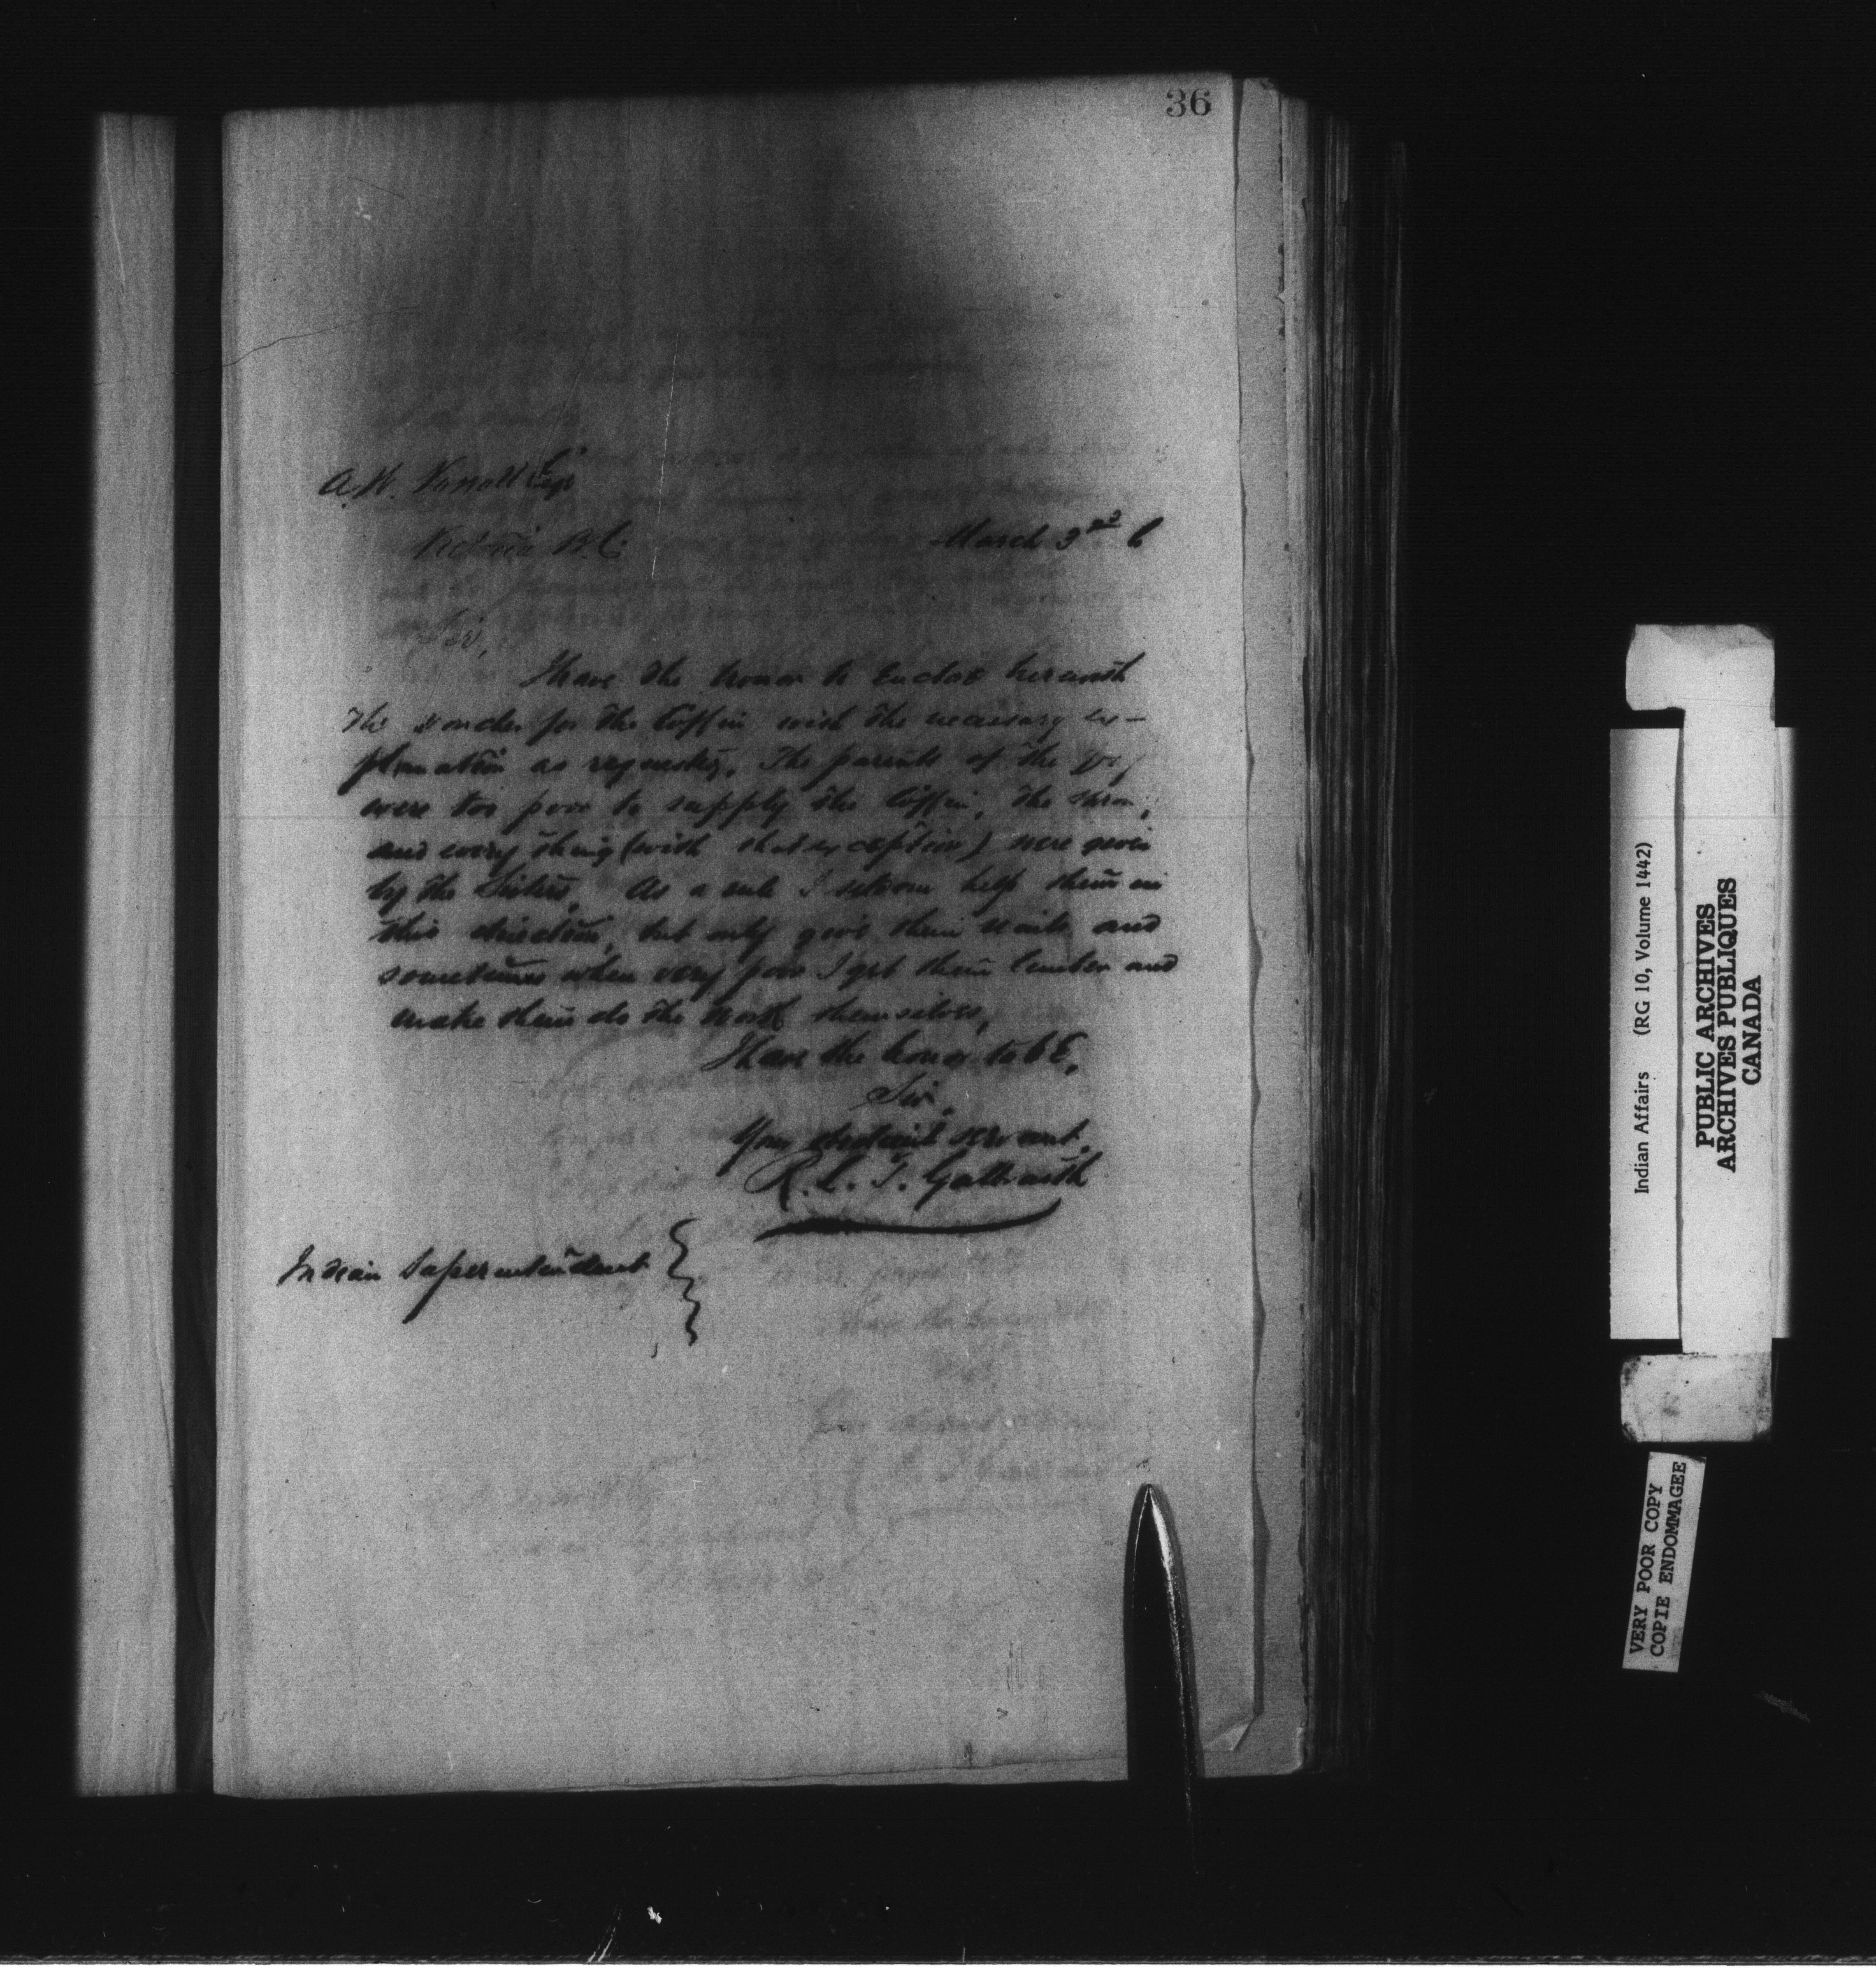 36
A. W. Vowell Esqr
Victoria B.C.
March 3rd 6
Sir,
I have the honor to enclose herewith
the voucher for the Coffin with the necessary ex-
planation as requested. The parents of the
were too poor to supply the Coffin, the
and every thing (with that exception) were given
by the Sisters. As a rule I seldom help them in
this direction, but only give them nails and
sometimes when very poor I get them lumber and
make them do the work themselves.
I have the honor to be,
Sir,
Your obedient servant,
R. L. T. Galbraith
Indian Superintendent
Indian Affairs (RG 10, Volume 1442)
PUBLIC ARCHIVES
ARCHIVES PUBLIQUES
CANADA
VERY POOR COPY
COPIE ENDOMMAGEE